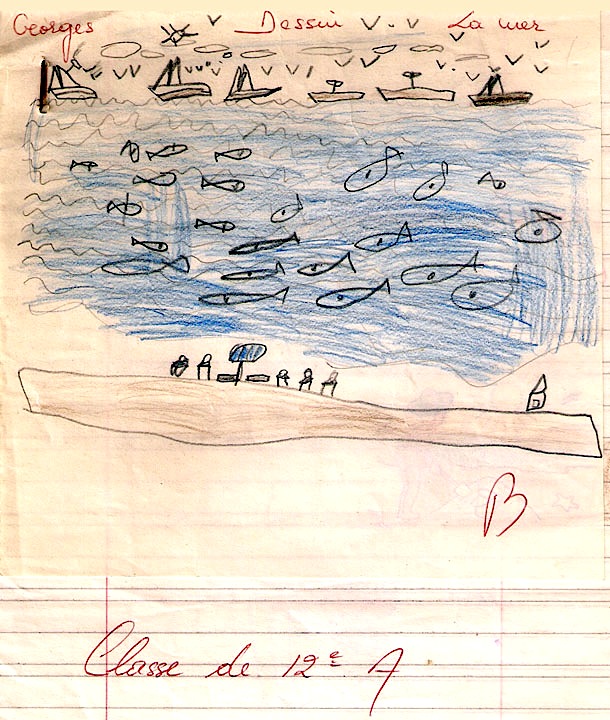 Georges Dessin La mer
B
Classe de 12e A